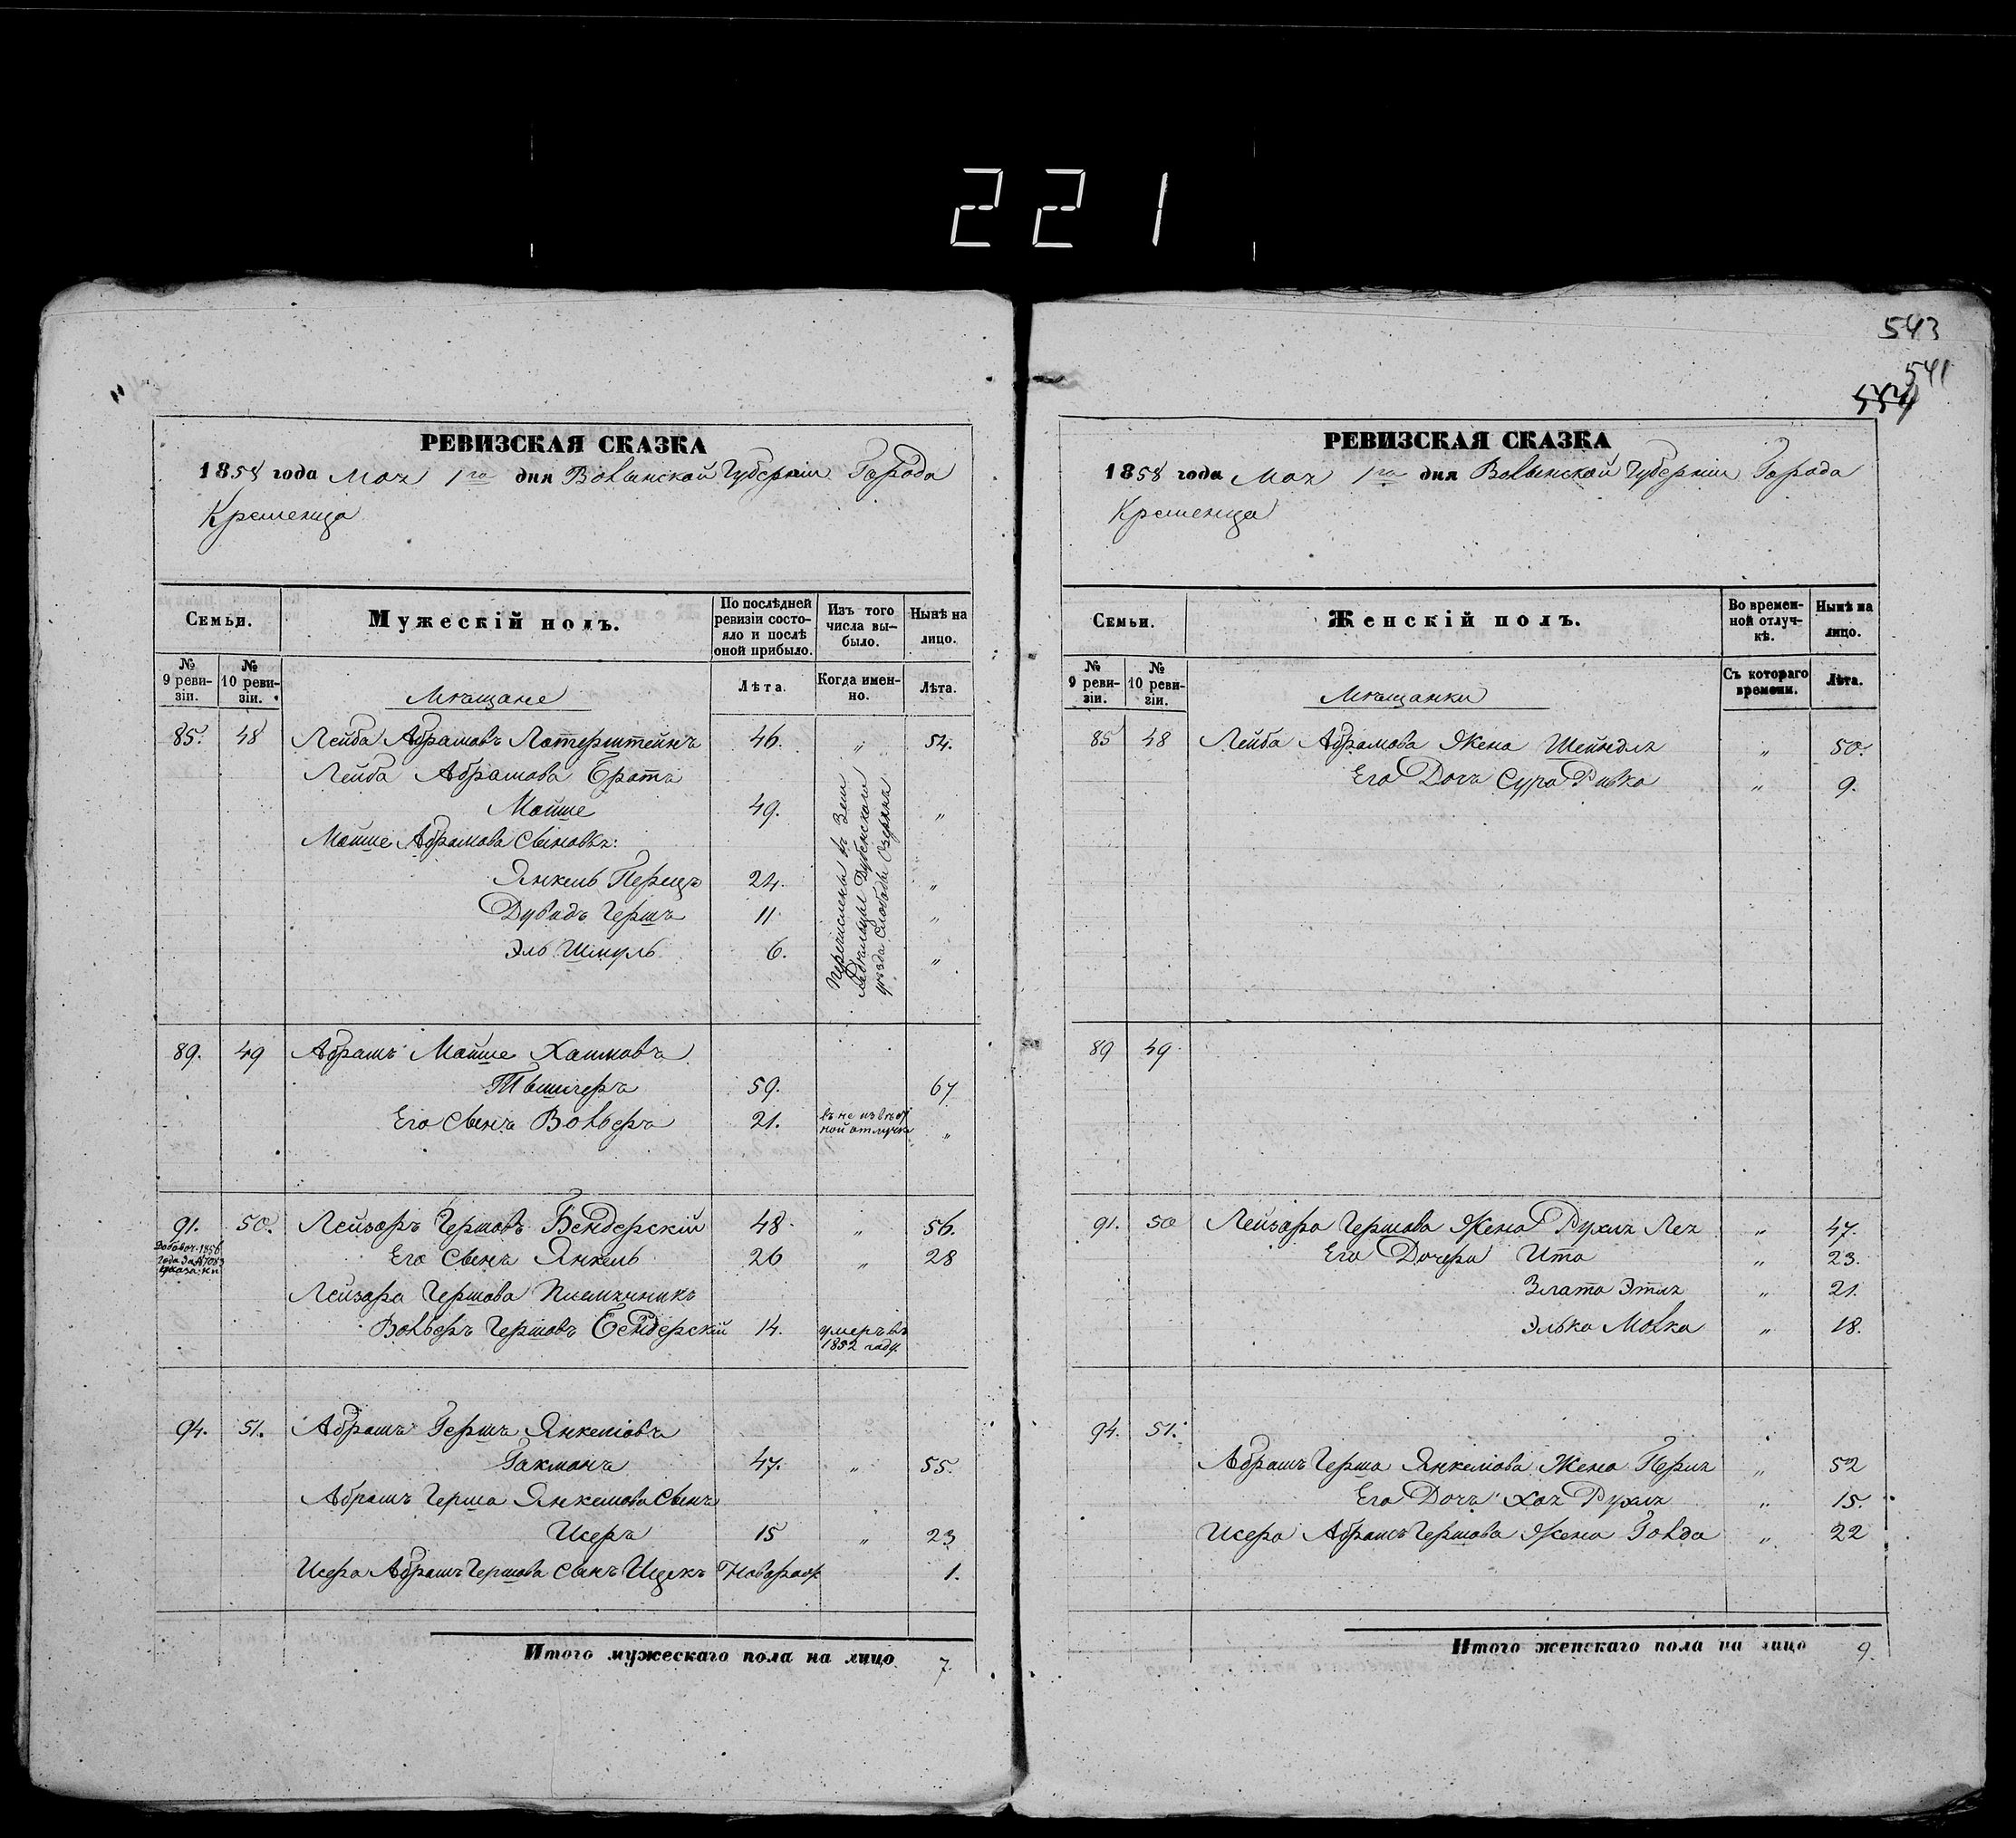 221
543
541
554
РЕВИЗСКАЯ СКАЗКА
1858 года Мая 1го дня Волынской Губерніи Города
Кременца
Семьи.
Мужескій полъ.
По послѣдней ревизіи состо-
яло и послѣ
оной прибыло.
Изъ того
числа вы-
было.
Нынѣ на
лицо.
№
9 реви-
зіи.
№
10 реви-
зіи.
Мѣщане
Лѣта.
Когда имен-
но.
Лѣта.
85. 48 Лейба Абрамовъ Лотерштейнъ 46. " 54.
Лейба Абрамова Братъ
Мойше 49. "
Мойше Абрамова Сыновья:
Янкель Перецъ 24. "
Дувидъ Гершъ 11 "
Эль Шмуль 6. "
Перечислены въ Зем
ледѣльцы Дубенскаго
уѣзда Слободы Озеряны
89. 49 Абрамъ Мойше Хаимовъ
59. 67
Его Сынъ Волберъ 21. въ не извѣст
ной отлучке "
91. 50. Лейзоръ Гершовъ Бендерскій 48. " 56.
Добавоч. 1856
года За № 7083
Его Сынъ Янкель 26 " 28
Лейзора Гершова Племянникъ
Волберъ Гершовъ Бендерскій 14. умеръ въ
1852 году.
94. 51. Абрамъ Гершъ Янкеліовъ
Гакманъ 47. " 55.
Абрамъ Герша Янкеліова Сынъ
Исеръ 15 " 23
Исера Абрамъ Гершова Сынъ Ицекъ Новорож. 1.
Итого мужескаго пола на лицо 7.
РЕВИЗСКАЯ СКАЗКА
1858 года Мая 1го дня Волынской Губерніи Города
Кременца
Семьи.
Женскій полъ.
Во времен-
ной отлуч-
кѣ.
Нынѣ на
лицо.
№
9 реви-
зіи.
№
10 реви-
зіи.
Мѣщанки
Съ котораго
времени.
Лѣта.
85 48 Лейба Абрамова Жена Шейндля " 50.
Его Дочь Сура Ривка " 9.
89 49
91. 50 Лейзора Гершова Жена Рухля Лея " 47.
Его Дочери Ита " 23.
Злата Этля " 21.
Элька Малка " 18.
94. 51.
Абрамъ Герша Янкеліова Жена Перля " 52
Его Дочь Хая Рухля " 15.
Исера Абрамъ Гершова Жена Голда " 22
Итого женскаго пола на лицо 9.